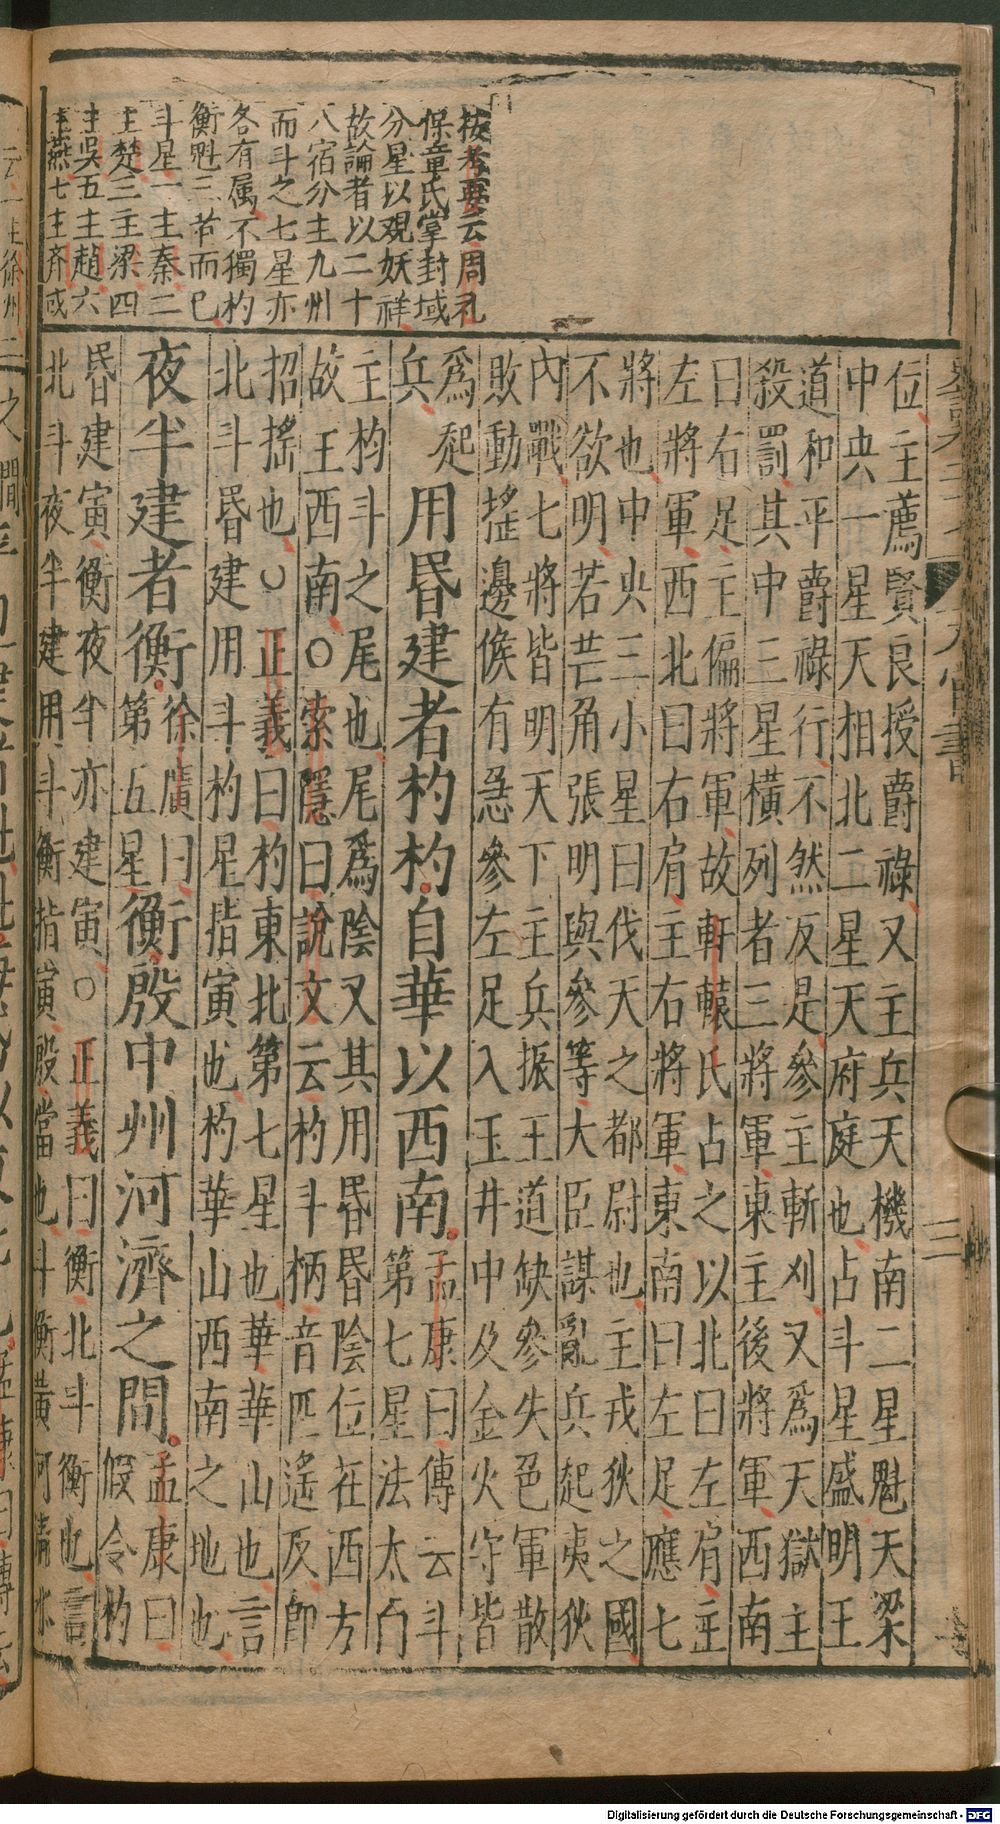 按考要云周礼
保章氏掌封域
分星以观妖祥
故論者以二十
八宿分主九州
而斗之七星亦
各有属不獨杓
衡魁三者而已
斗星一主秦二
主楚三主梁四
主吳五主趙六
主燕七主齐或
位主薦賢良授爵祿又主兵天機南二星魁天梁
中央一星天相北二星天府庭也占斗星盛明王
道和平爵祿行不然反是參主斬刈又為天獄主
殺罰其中三星橫列者三將軍東主後將軍西南
曰右足主偏將軍故軒轅氏占之以北曰左肩主
左將軍西北曰右肩主右將軍東南曰左足應七
將也中央三小星曰伐天之都尉也主戎狄之國
不欲明若芒角張明與參等大臣謀亂兵起夷狄
內戰七將皆明天下主兵振王道缺參失色軍散
敗動搖邊候有急參左足入玉井中及金火守皆
為起
兵
用昏建者杓杓自華以西南
孟康曰傳云斗
第七星法太白
主杓斗之尾也尾為陰又其用昏昏陰位在西方
故王西南○索隱曰說文云杓斗柄音匹遙反即
招搖也○正義曰杓東北第七星也華華山也言
北斗昏建用斗杓星指寅也杓華山西南之地也
夜半建者衡
徐廣曰
第五星
衡殷中州河濟之間
孟康曰
假令杓
昏建寅衡夜半亦建寅○正義曰衡北斗衡也言
北斗夜半建用斗衡指寅殷當也斗衡黃河濟水
三
Digitalisierung gefördert durch die Deutsche Forschungsgemeinschaft - DFG